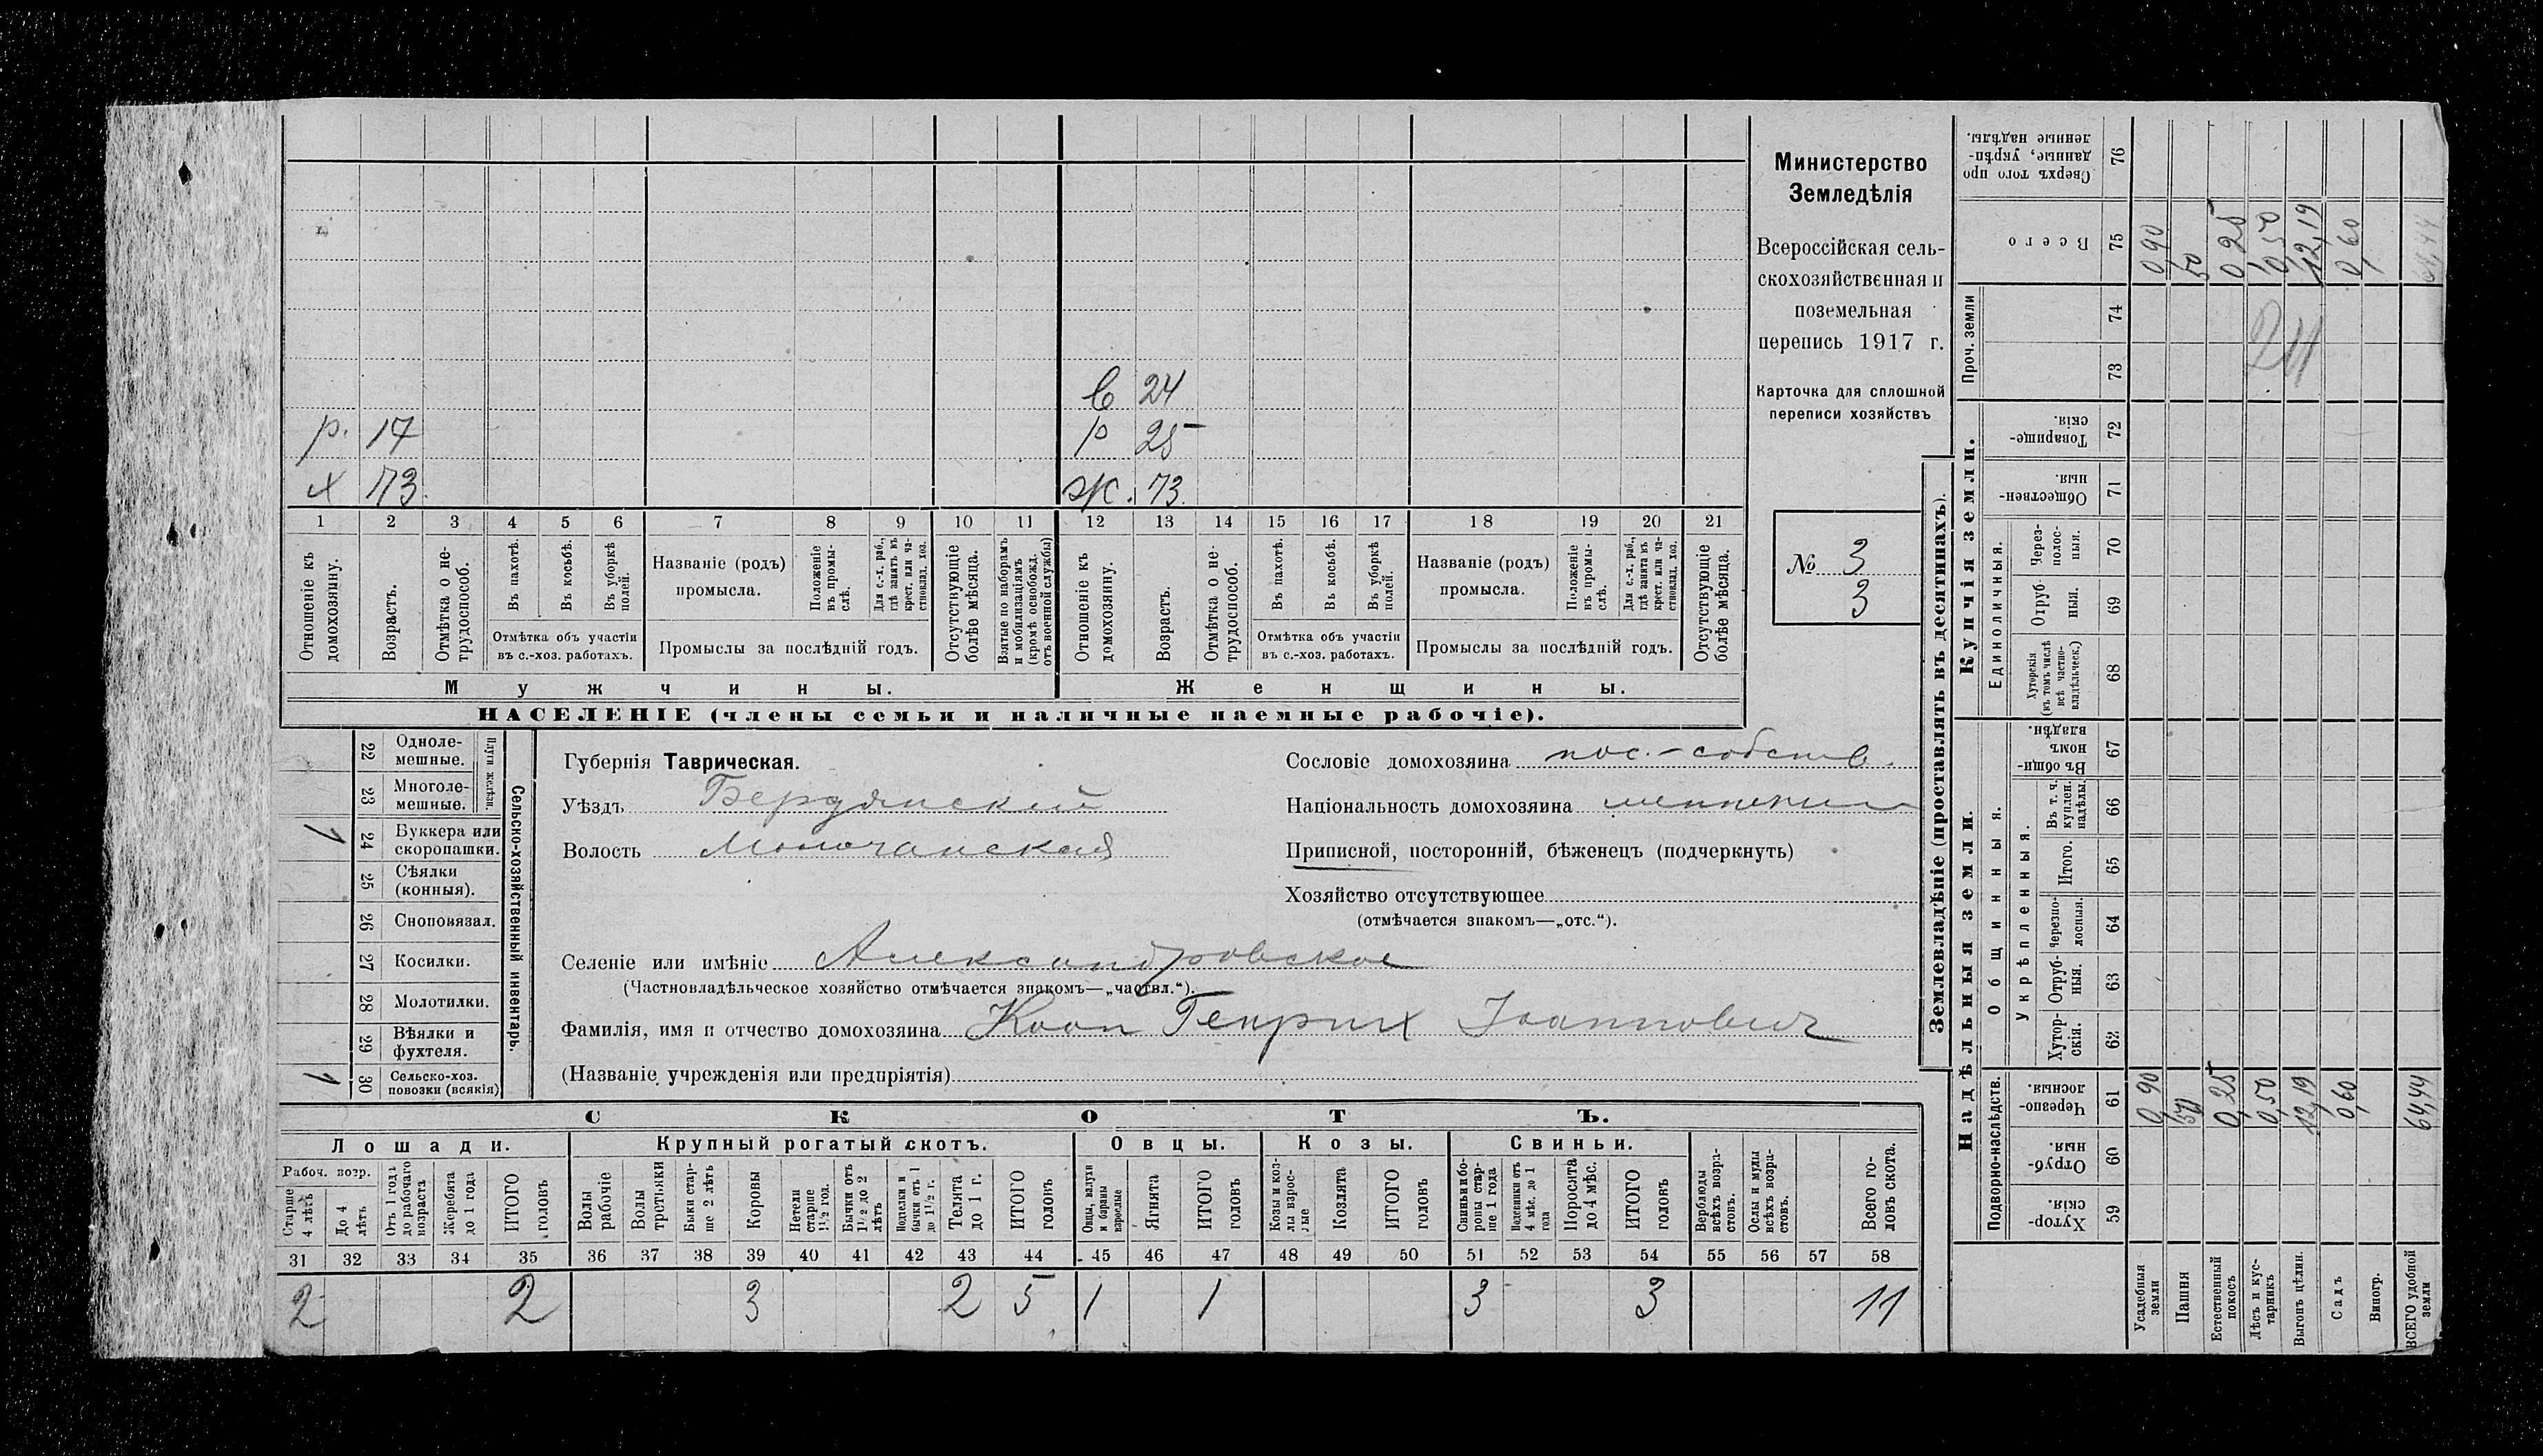 в 24
р. 17 р 25
х 73. ж. 73.
1 2 3 4 5 6 7 8 9 10 11 12 13 14 15 16 17 18 19 20 21
Отношеніе къ домохозяину.
Возрастъ.
Отмѣтка о не-трудоспособ.
Въ пахотѣ.
Въ косьбѣ.
Въ уборкѣ полей.
Отмѣтка объ участіи
въ с.-хоз. работахъ.
Названіе (родъ)
промысла.
Положеніе въ промы-слѣ.
Для с.-х. раб., гдѣ занятъ въ крест. или ча-стновлад. хоз.
Промыслы за послѣдній годъ.
Отсутствующіе болѣе мѣсяца.
Взятые по наборамъ и мобилизаціямъ (кромѣ освобожд. отъ военной службы)
Отношеніе къ домохозяину.
Возрастъ.
Отмѣтка о не-трудоспособ.
Въ пахотѣ.
Въ косьбѣ.
Въ уборкѣ полей.
Отмѣтка объ участіи
въ с.-хоз. работахъ.
Названіе (родъ)
промысла.
Положеніе въ промы-слѣ.
Для с.-х. раб., гдѣ занята въ крест. или ча-стновлад. хоз.
Промыслы за послѣдній годъ.
Отсутствующіе болѣе мѣсяца.
Мужчины. Женщины.
НАСЕЛЕНІЕ (члены семьи и наличные наемные рабочіе).
Министерство
Земледѣлія
Всероссійская сель-
скохозяйственная и
поземельная
перепись 1917 г.
Карточка для сплошной
переписи хозяйствъ
№ 3
3
Сельско-хозяйственный инвентарь.
Плуги желѣзн.
22 Одноле-мешные.
23 Многоле-мешные.
1 24 Буккера или скоропашки.
25 Сѣялки (конныя).
26 Сноповязал.
27 Косилки.
28 Молотилки.
29 Вѣялки и фухтеля.
1 30 Сельско-хоз. повозки (всякія)
Губернія Таврическая.
Уѣздъ Бердянскій
Волость Молочанская
Сословіе домохозяина пос.-собств.
Національность домохозяина меннонит
Приписной, посторонній, бѣженецъ (подчеркнуть)
Хозяйство отсутствующее
(отмѣчается знакомъ—„отс.“).
Селеніе или имѣніе Александровское
(Частновладѣльческое хозяйство отмѣчается знакомъ—„частвл.“).
Фамилія, имя и отчество домохозяина Кооп Генрих Іоаннович
(Названіе учрежденія или предпріятія)
СКОТЪ.
Лошади. Крупный рогатый скотъ. Овцы. Козы. Свиньи.
Рабоч. возр.
Старше 4 лѣтъ
До 4 лѣтъ
Отъ 1 года до рабочаго возраста
Жеребята до 1 года
ИТОГО головъ
Волы рабочіе
Волы третьяки
Быки стар-ше 2 лѣтъ
Коровы
Нетели старше 1½ год.
Бычки отъ 1½ до 2 лѣтъ
Подтелки и бычки отъ 1 до 1½ г.
Телята до 1 г.
ИТОГО головъ
Овцы, валухи и бараны взрослые
Ягнята
ИТОГО головъ
Козы и коз-лы взрос-лые
Козлята
ИТОГО головъ
Свиньи и бо-ровы стар-ше 1 года
Подсвинки отъ 4 мѣс. до 1 года
Поросята до 4 мѣс.
ИТОГО головъ
Верблюды всѣхъ возра-стовъ.
Ослы и мулы всѣхъ возра-стовъ.
Всего го-ловъ скота.
31 32 33 34 35 36 37 38 39 40 41 42 43 44 45 46 47 48 49 50 51 52 53 54 55 56 57 58
2 2 3 2 5 1 1 3 3 11
Землевладѣніе (проставлять въ десятинахъ).
Надѣльныя земли. Купчія земли. Проч. земли
Подворно-наслѣдств.
Общинныя.
Укрѣпленныя.
Единоличныя.
Хутор-скія. 59
Отруб-ныя. 60
Черезпо-лосныя. 61
Хутор-скія. 62
Отруб-ныя. 63
Черезпо-лосныя. 64
Итого. 65
Въ т. ч. куплен. надѣлы. 66
Въ общи-номъ владѣн. 67
Хуторскія (въ томъ числѣ всѣ частно-владѣльческ.) 68
Отруб-ныя. 69
Через-полос-ныя. 70
Обществен-ныя. 71
Товарище-скія. 72
73
74
Всего 75
Сверхъ того про данные, укрѣп-ленные надѣлы. 76
Усадебныя земли 0,90 0,90
Пашня 50 50
Естественный покосъ 0,25 0,25
Лѣсъ и кус-тарникъ 0,50 0,50
Выгонъ цѣлин. 12,19 12,19
Садъ 0,60 0,60
Виногр.
ВСЕГО удобной земли 64,44 64,44